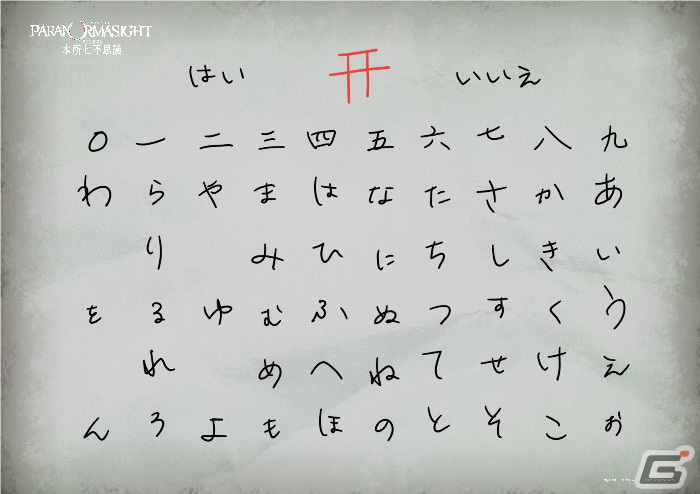 PARANORMASIGHT
本所七不思議
はい いいえ
0 一 二 三 四 五 六 七 八 九
わ ら や ま は な た さ か あ
り み ひ に ち し き い
を る ゆ む ふ ぬ つ す く う
れ め へ ね て せ け え
ん ろ よ も ほ の と そ こ お
G